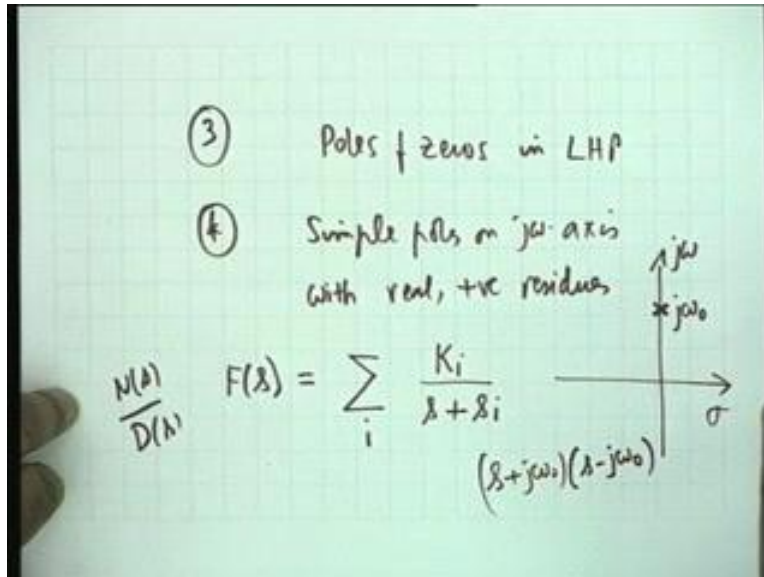 ③ Poles & zeros in LHP
④ Simple poles on jω-axis
with real, +ve residues
jω
jω₀
N(s)/D(s) F(s) = ∑ᵢ Kᵢ/(s + sᵢ)
σ
(s+jω₀)(s-jω₀)